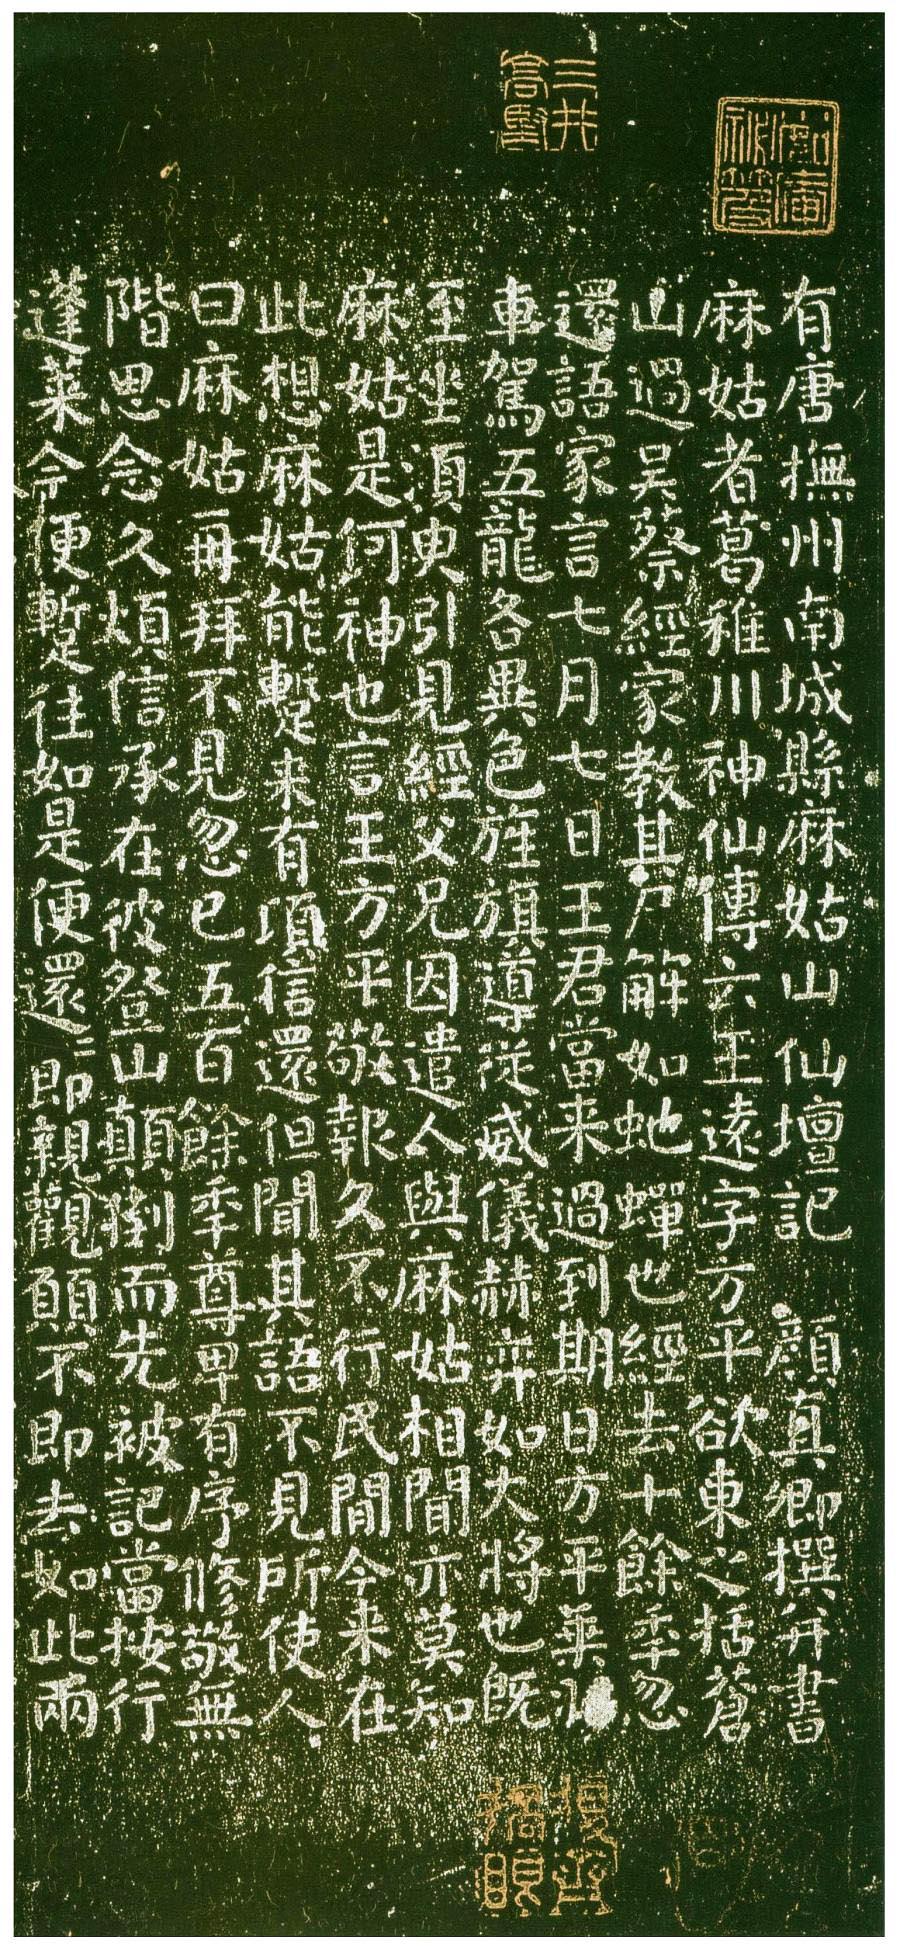 三井高堅
有唐撫州南城縣麻姑山仙壇記 顏真卿撰并書
麻姑者葛稚川神仙傳云王遠字方平欲東之括蒼
山過吳蔡經家教其尸解如虵蟬也經去十餘秊忽
還語家言七月七日王君當来過到期日方平乗
車駕五龍各異色旌旗導従威儀赫弈如大將也既
至坐須臾引見經父兄因遣人與麻姑相聞亦莫知
麻姑是何神也言王方平敬報久不行民間今来在
此想麻姑能蹔来有頃信還但聞其語不見所使人
曰麻姑再拜不見忽已五百餘秊尊卑有序修敬無
階思念久煩信承在彼登山顛倒而先被記當按行
蓬萊今便蹔往如是便還〻即親觀願不即去如此兩